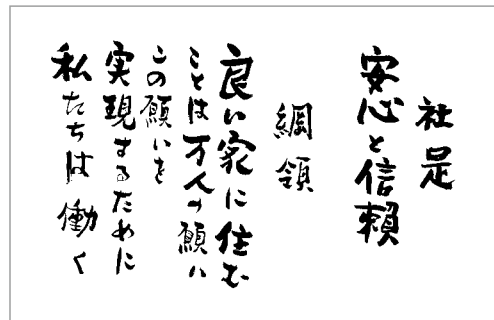 社是
安心と信頼
綱領
良い家に住む
ことは万人の願い
この願いを
実現するために
私たちは働く